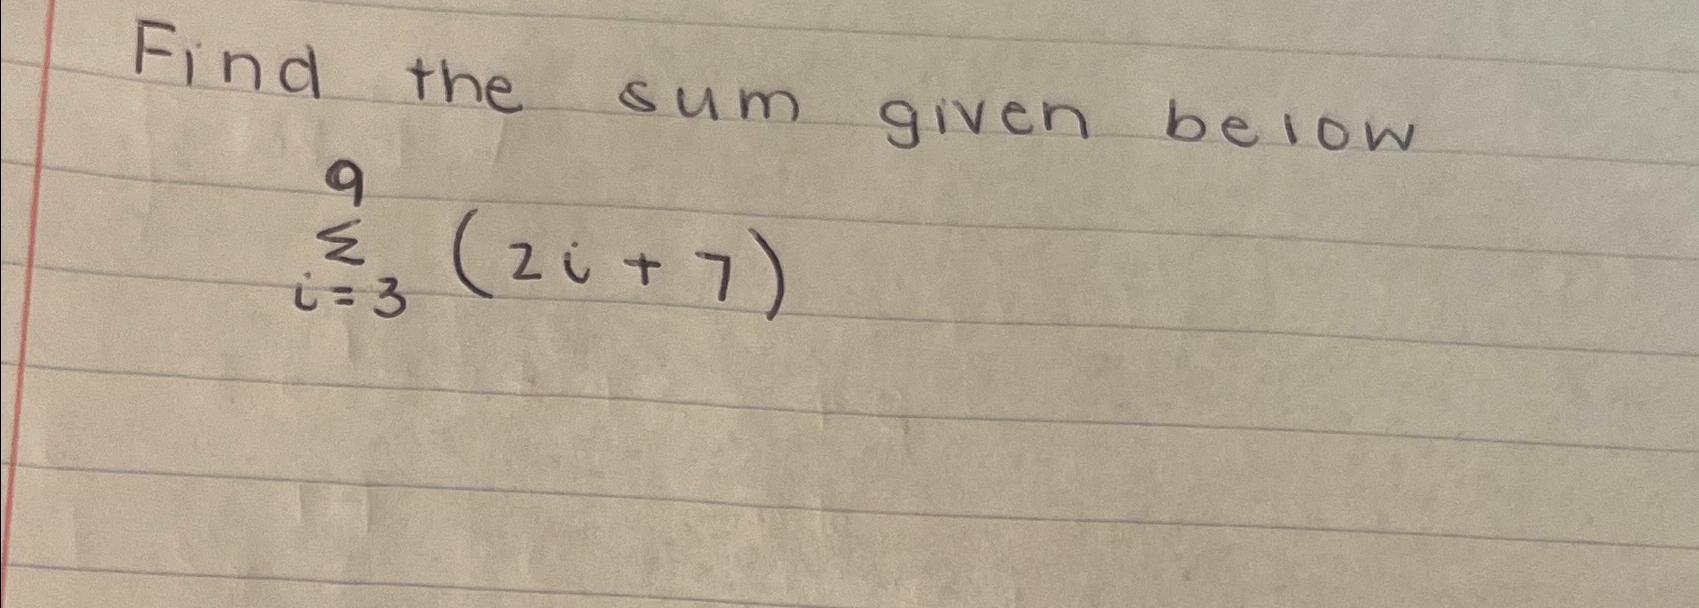 Find the sum given below
9
Σ (2i + 7)
i = 3